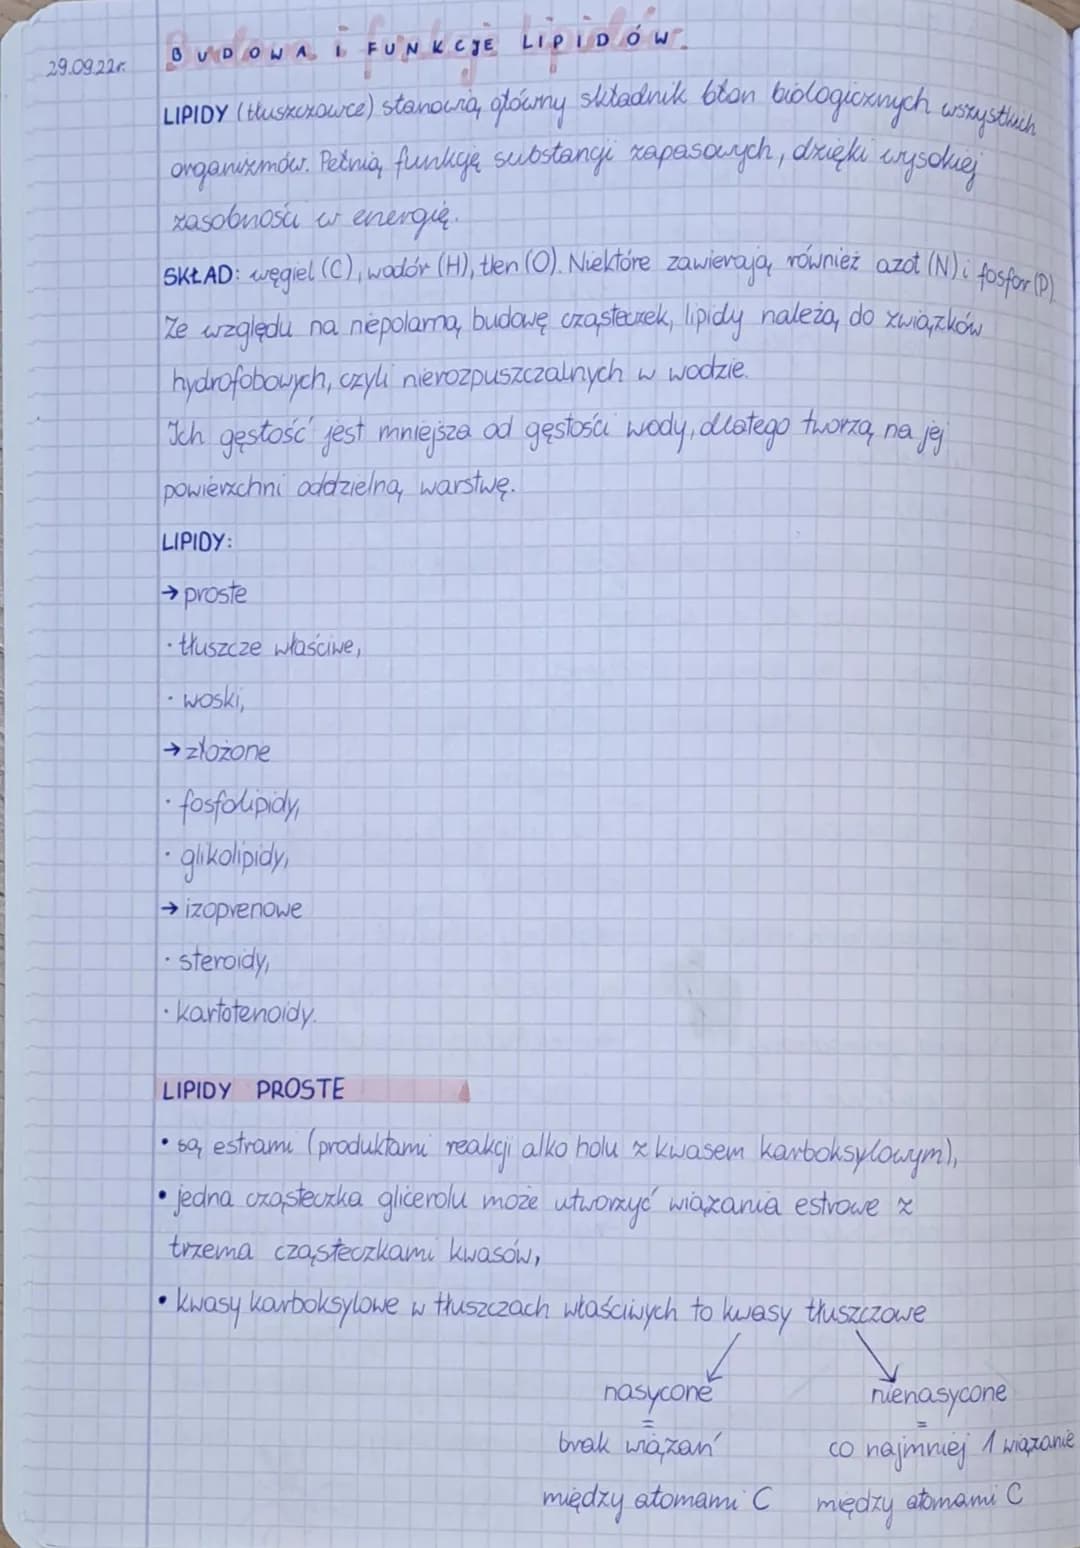 29.09.22r.
BUDOWA i FUNKCJE LIPIDÓW
LIPIDY (tłuszczowce) stanowią główny składnik błon biologicznych wszystkich
organizmów. Pełnią funkcję substancji zapasowych, dzięki wysokiej
zasobności w energię.
SKŁAD: węgiel (C), wodór (H), tlen (O). Niektóre zawierają również azot (N) i fosfor (P)
Ze względu na niepolarną budowę cząsteczek, lipidy należą do związków
hydrofobowych, czyli nierozpuszczalnych w wodzie.
Ich gęstość jest mniejsza od gęstości wody, dlatego tworzą na jej
powierzchni oddzielną warstwę.
LIPIDY:
→ proste
· tłuszcze właściwe,
· woski,
→ złożone
· fosfolipidy,
· glikolipidy,
→ izoprenowe
· steroidy,
· kartotenoidy.
LIPIDY PROSTE
• są estrami (produktami reakcji alkoholu z kwasem karboksylowym),
• jedna cząsteczka glicerolu może utworzyć wiązania estrowe z
trzema cząsteczkami kwasów,
• kwasy karboksylowe w tłuszczach właściwych to kwasy tłuszczowe
nasycone nienasycone
= =
brak wiązań co najmniej 1 wiązanie
między atomami C między atomami C